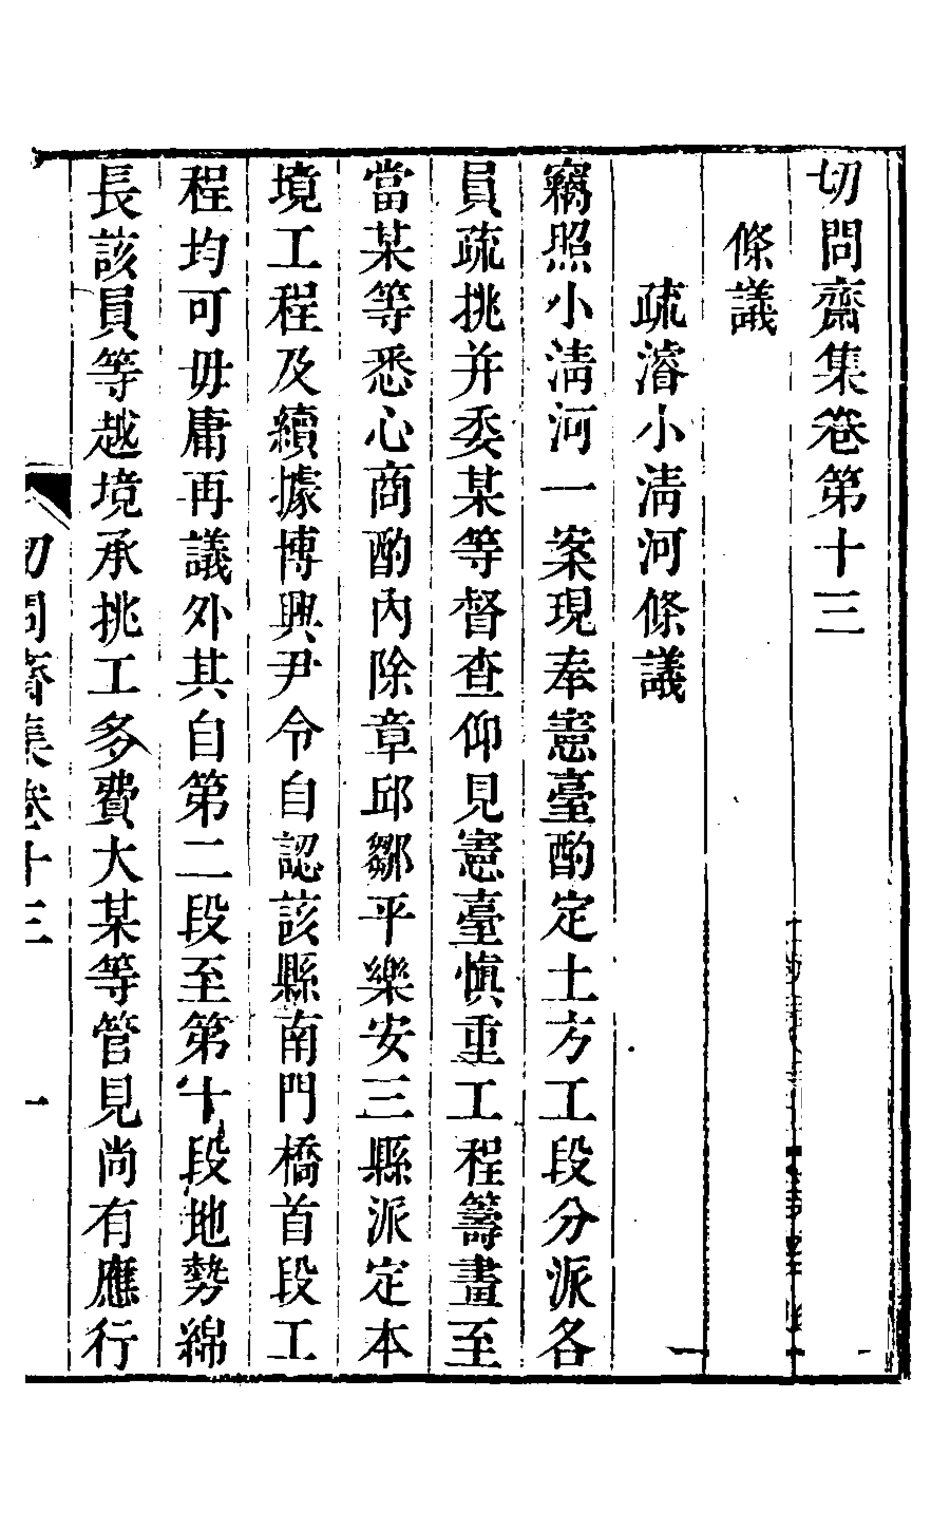 切問齋集卷第十三
條議
疏濬小淸河條議
竊照小淸河一案現奉憲臺酌定土方工段分派各
員疏挑并委某等督查仰見憲臺愼重工程籌畫至
當某等悉心商酌內除章邱鄒平樂安三縣派定本
境工程及續據博興尹令自認該縣南門橋首段工
程均可毋庸再議外其自第二段至第十段地勢綿
長該員等越境承挑工多費大某等管見尚有應行
切問齋集卷十三 一